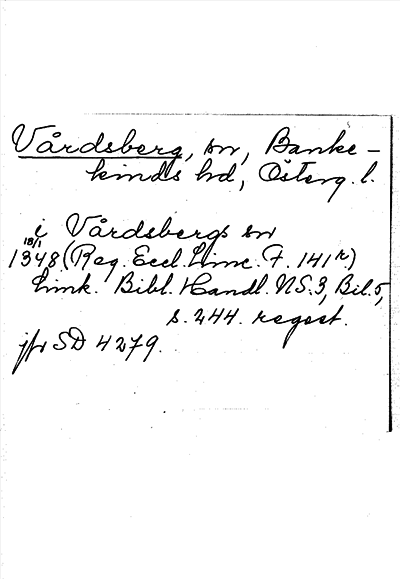 Vårdsberg, sn, Banke-
kinds hd, Österg. l.
i Vårdsbergs sn
18/1
1348 (Reg. Eccl. Linc. F. 141 r.)
Link. Bibl. Handl. NS. 3, Bil. 5,
s. 244. regest.
jfr SD 4279.